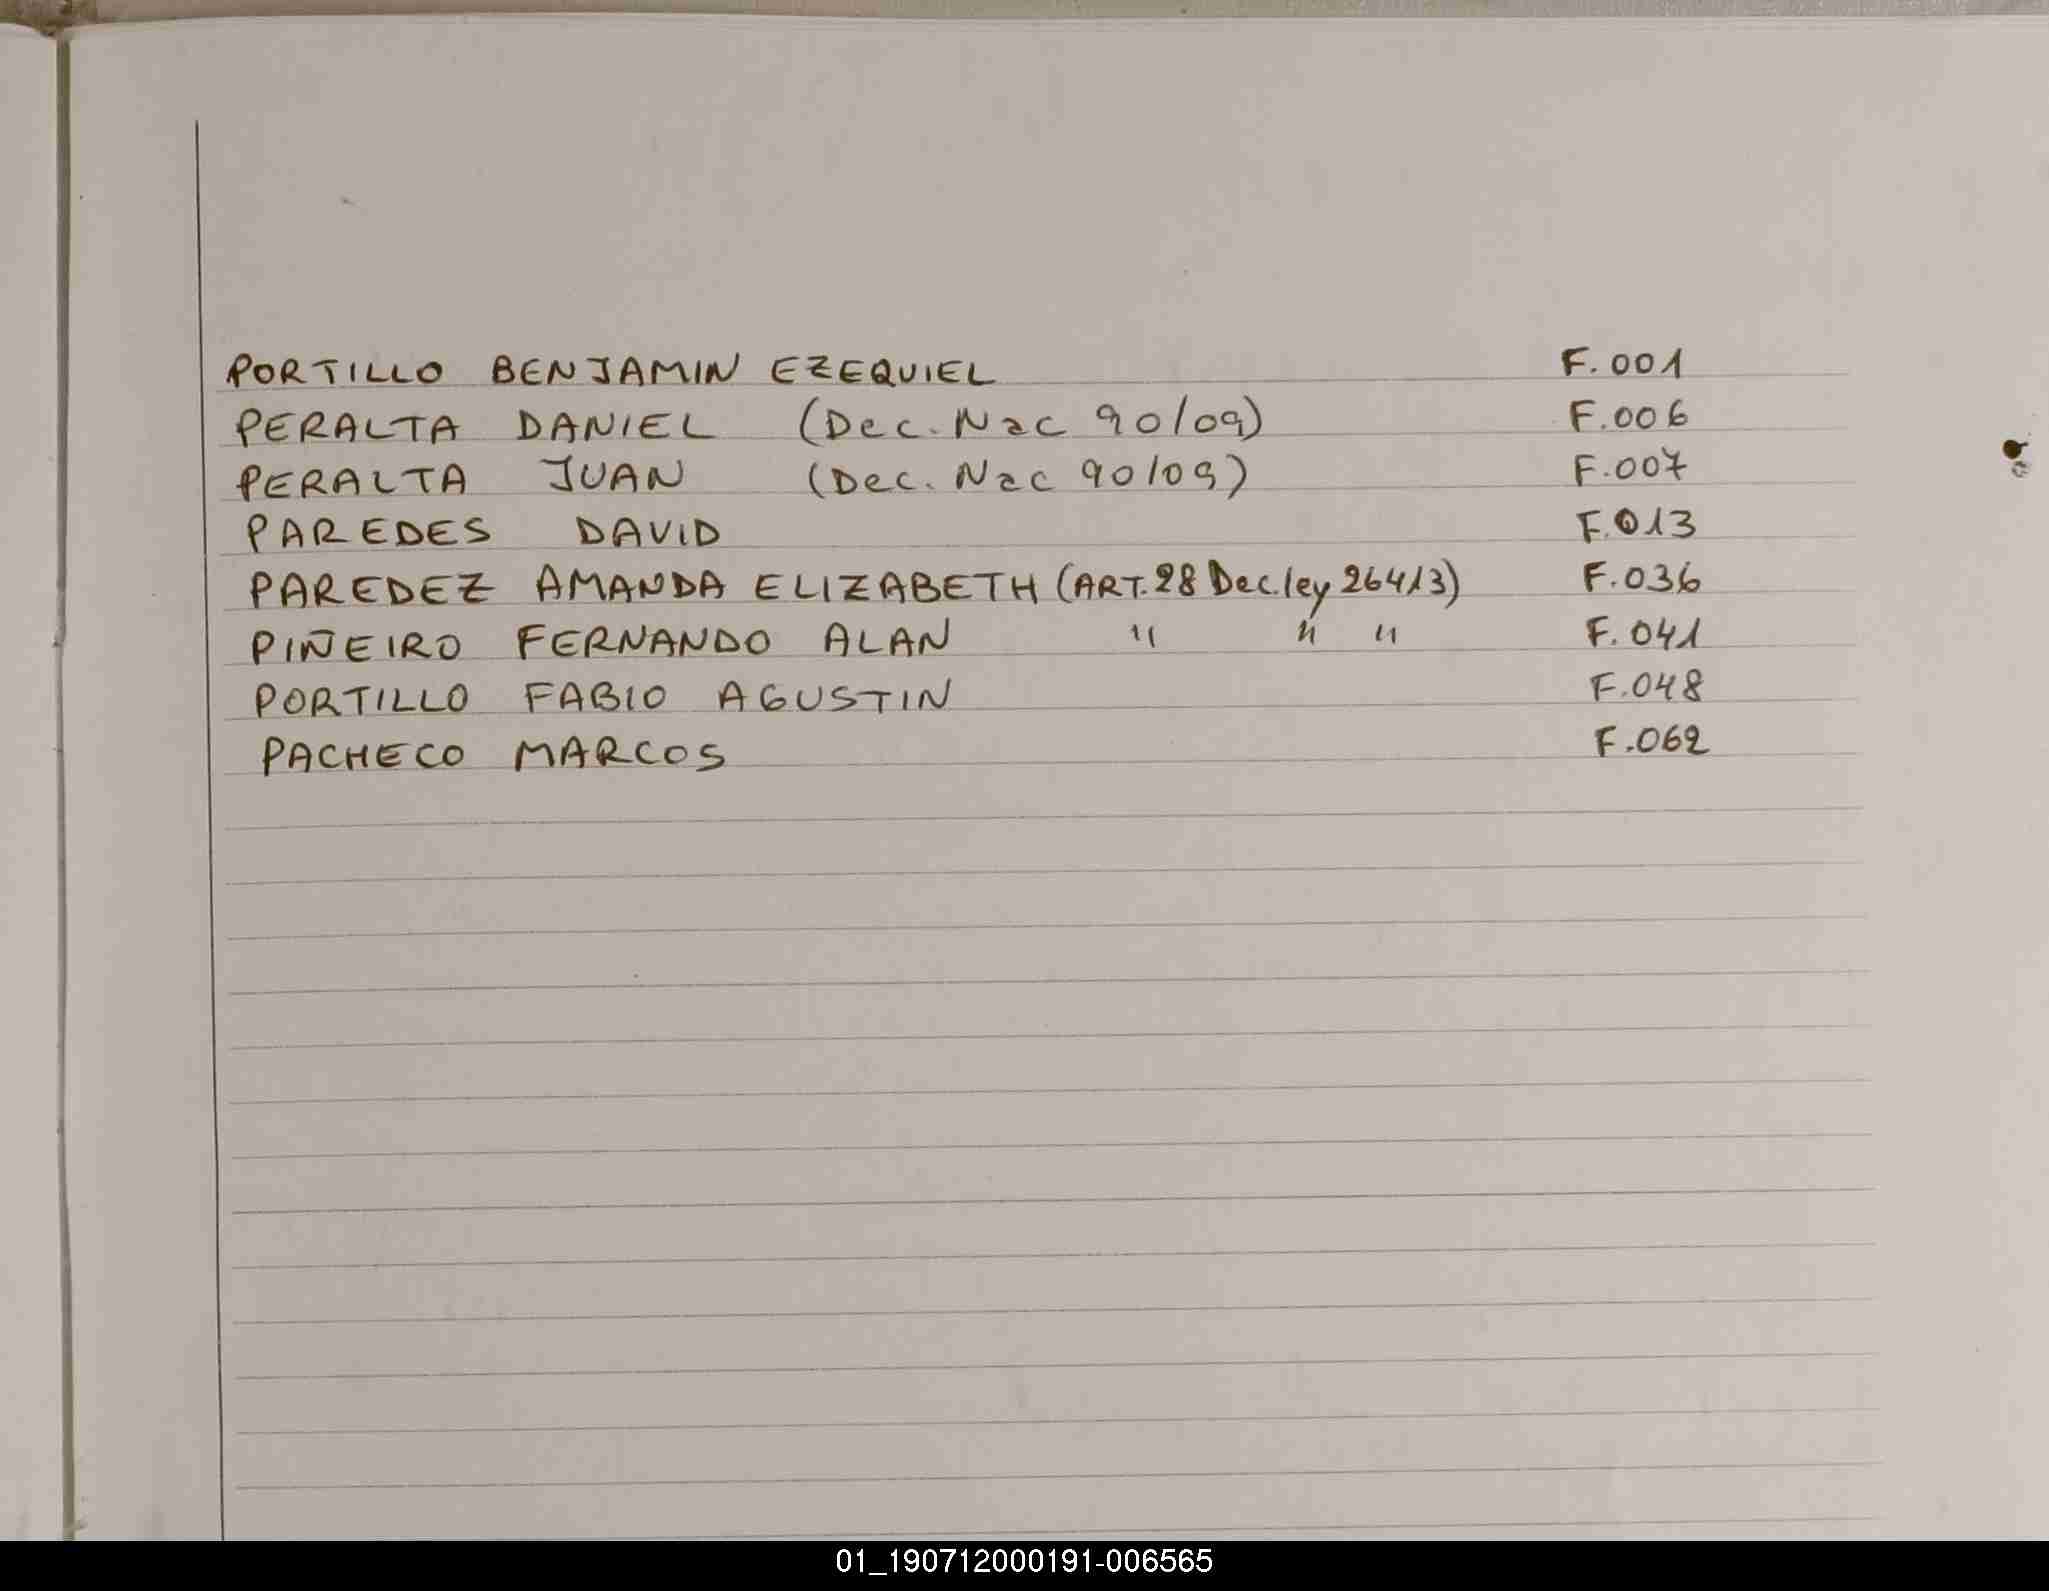 PORTILLO BENJAMIN EZEQUIEL F.001
PERALTA DANIEL (Dec. Nac 90/09) F.006
PERALTA JUAN (Dec. Nac 90/09) F.007
PAREDES DAVID F.013
PAREDEZ AMANDA ELIZABETH (ART.28 Dec.ley 26413) F.036
PIÑEIRO FERNANDO ALAN " " " F.041
PORTILLO FABIO AGUSTIN F.048
PACHECO MARCOS F.062
01_190712000191-006565